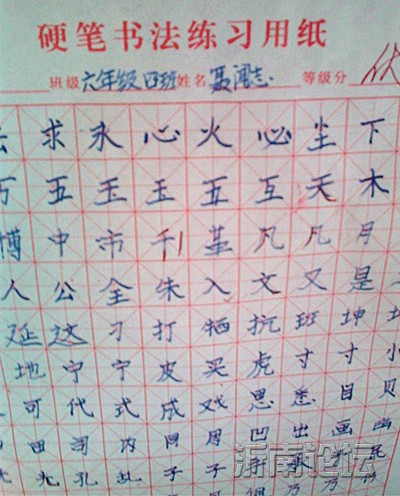 硬笔书法练习用纸
班级 六年级四班 姓名 聂闻志. 等级分 优
求 永 心 火 必 尘 下
五 王 玉 五 互 天 木
博 中 市 千 革 凡 凡 月
人 公 全 朱 入 文 又 是
延 这 刁 打 牺 抗 班 坤
地 宁 宁 皮 买 虎 寸 寸 小
可 代 式 成 戏 思 悉 目 贝
四 司 内 同 用 凹 出 画 幽
允 孔 乱 子 子
浙南论坛